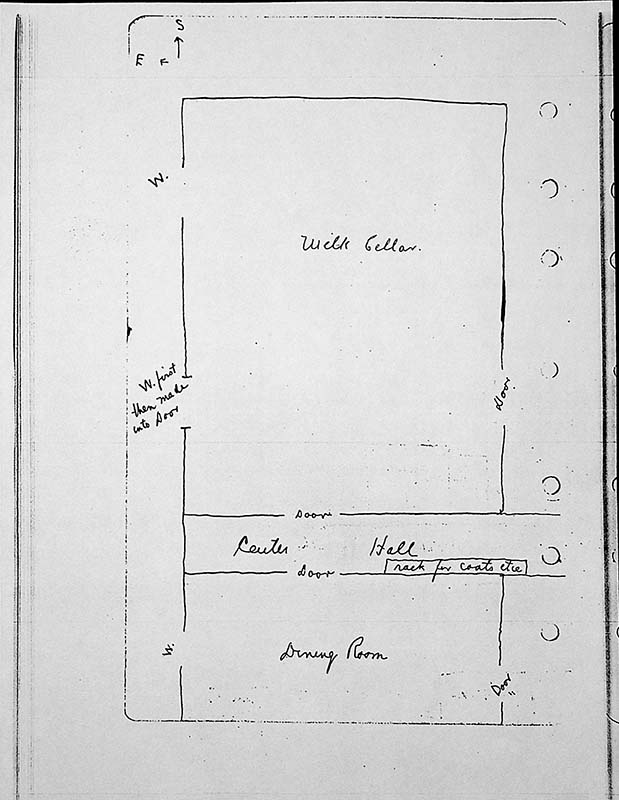 S
E
W.
Milk Cellar.
W. first
then made
into Door
Door
Door
Center Hall
Door
rack for coats etc
W.
Dining Room
Door